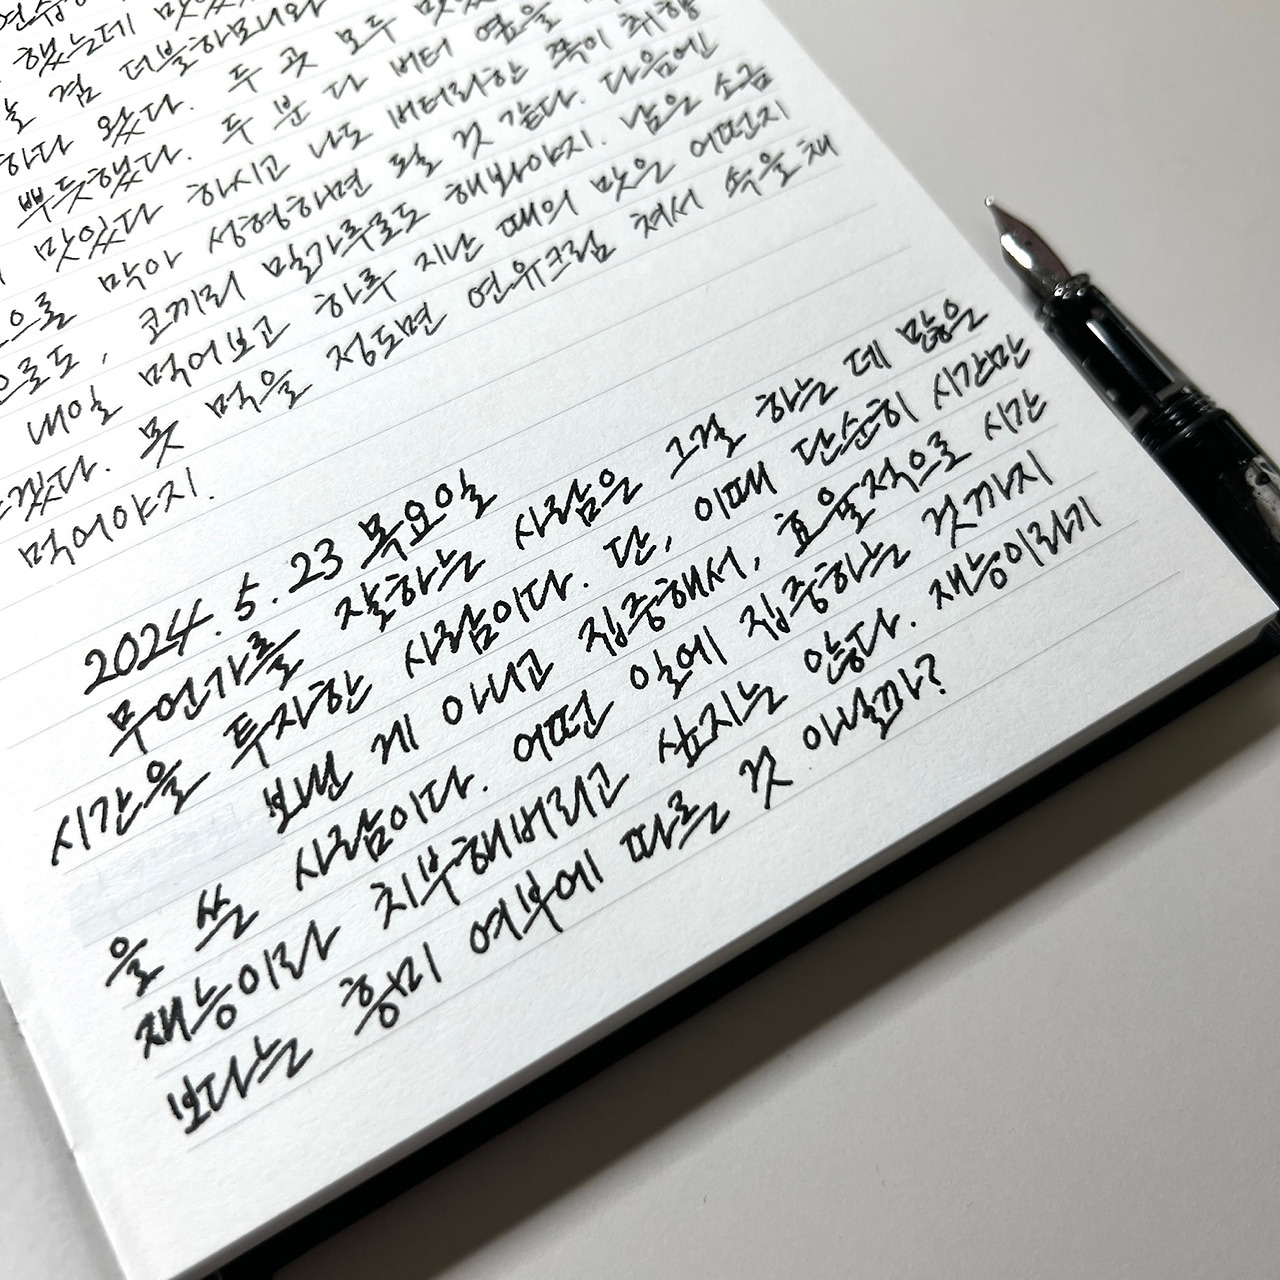 했는데
겸 더불하모니와
하다 왔다. 두 곳 모두
뿌듯했다. 두 분 다 버터
맛있다 하시고 나도 버터리한 쪽이 취향
으로 막아 성형하면 될 것 같다. 다음에
으로도, 코끼리 밀가루로도 해봐야지. 남은 소금
내일 먹어보고 하루 지난 때의 맛은 어떤지
겠다. 못 먹을 정도면 연유크림 쳐서 속을 채
먹어야지.
2024. 5. 23 목요일
무언가를 잘하는 사람은 그걸 하는 데 많은
시간을 투자한 사람이다. 단, 이때 단순히 시간만
보낸 게 아니고 집중해서, 효율적으로 시간
을 쓴 사람이다. 어떤 일에 집중하는 것까지
재능이라 치부해버리고 싶지는 않다. 재능이라기
보다는 흥미 여부에 따른 것 아닐까?